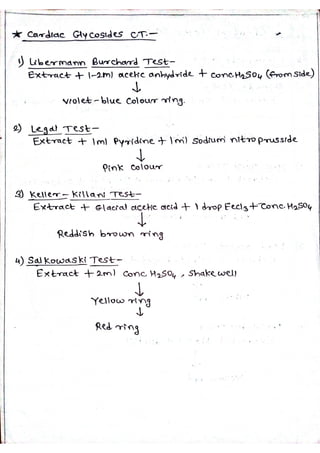 ★ Cardiac Glycosides C.T.-
1) Libermann Burchard Test-
Extract + 1-2ml acetic anhydride + conc.H₂SO₄ (from side)
↓
Violet-blue Colour ring.
2) Legal Test-
Extract + 1ml Pyridine + 1ml Sodium nitroprusside
↓
Pink Colour
3) Keller-Killani Test-
Extract + Glacial acetic acid + 1 drop Fecl₃ + Conc. H₂SO₄
↓
Reddish brown ring
4) Salkowaski Test-
Extract + 2ml Conc. H₂SO₄, Shake well
↓
Yellow ring
↓
Red ring